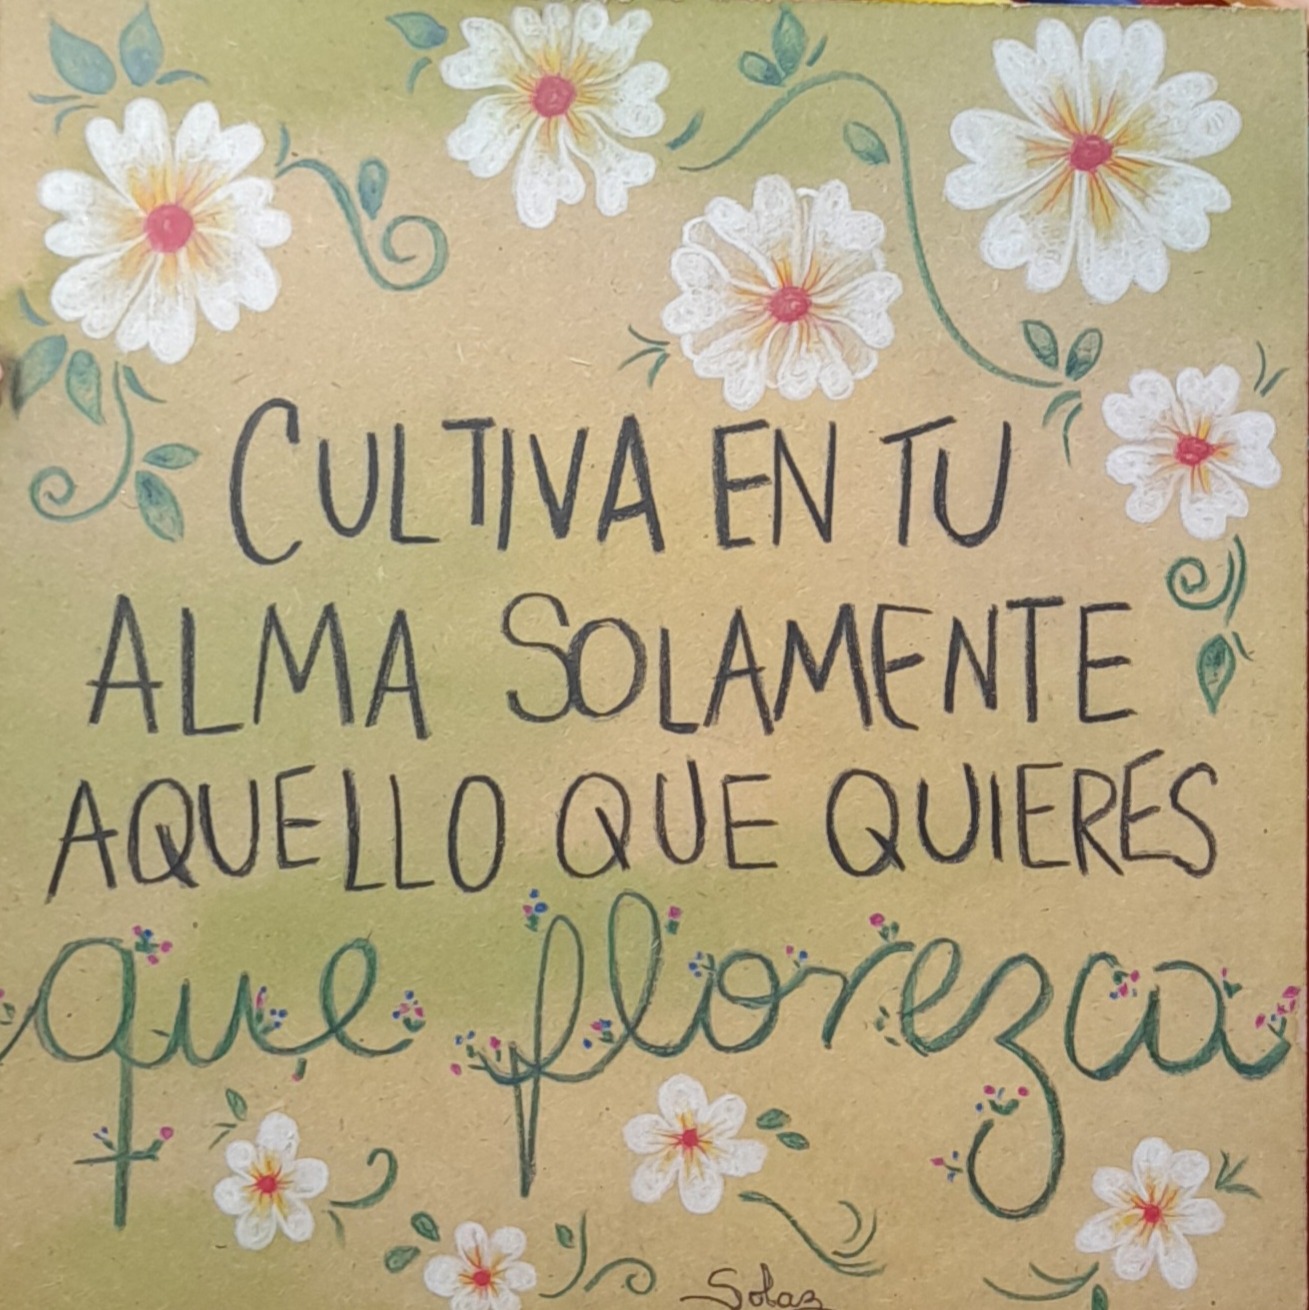 CULTIVA EN TU
ALMA SOLAMENTE
AQUELLO QUE QUIERES
que florezca
Solaz